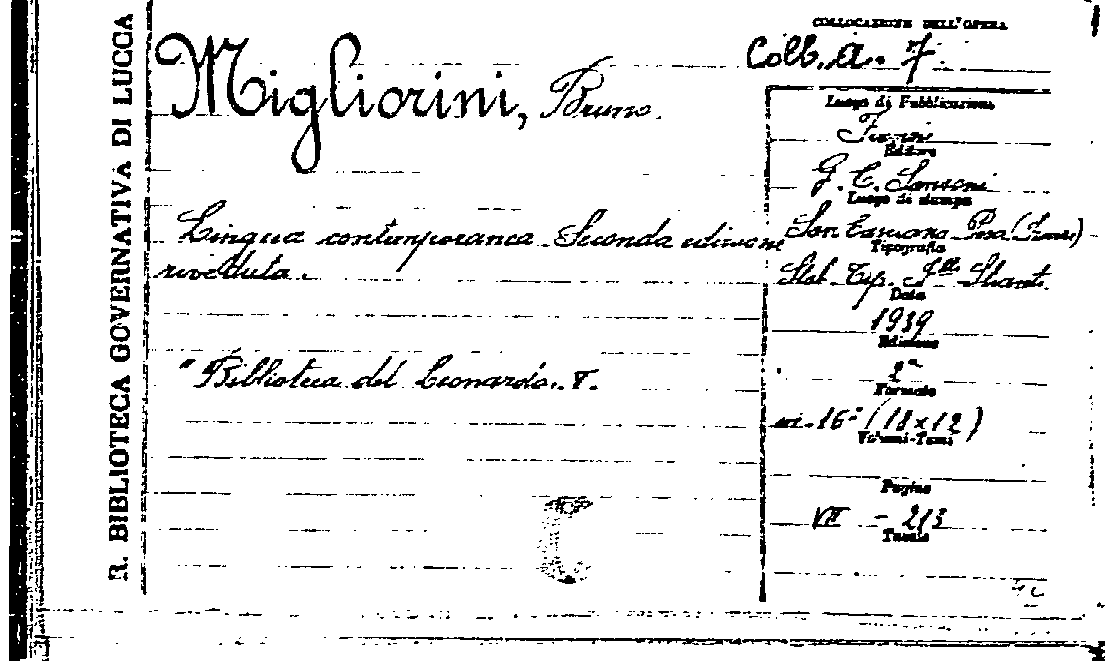 R. BIBLIOTECA GOVERNATIVA DI LUCCA
COLLOCAZIONE DELL'OPERA
Coll. A. 7.
Migliorini, Bruno.
Lingua contemporanea. Seconda edizione
riveduta.
"Biblioteca del Leonardo.
Luogo di Pubblicazione
Editore
G. C. Sansoni
Luogo di stampa
San Casciano Pesa (Firenze)
Tipografia
Stab. Tip. F.lli Stianti
Data
1939
Edizione
2ª
Formato
16° (18x12)
Volumi-Tomi
Pagine
VII - 213
Tavole